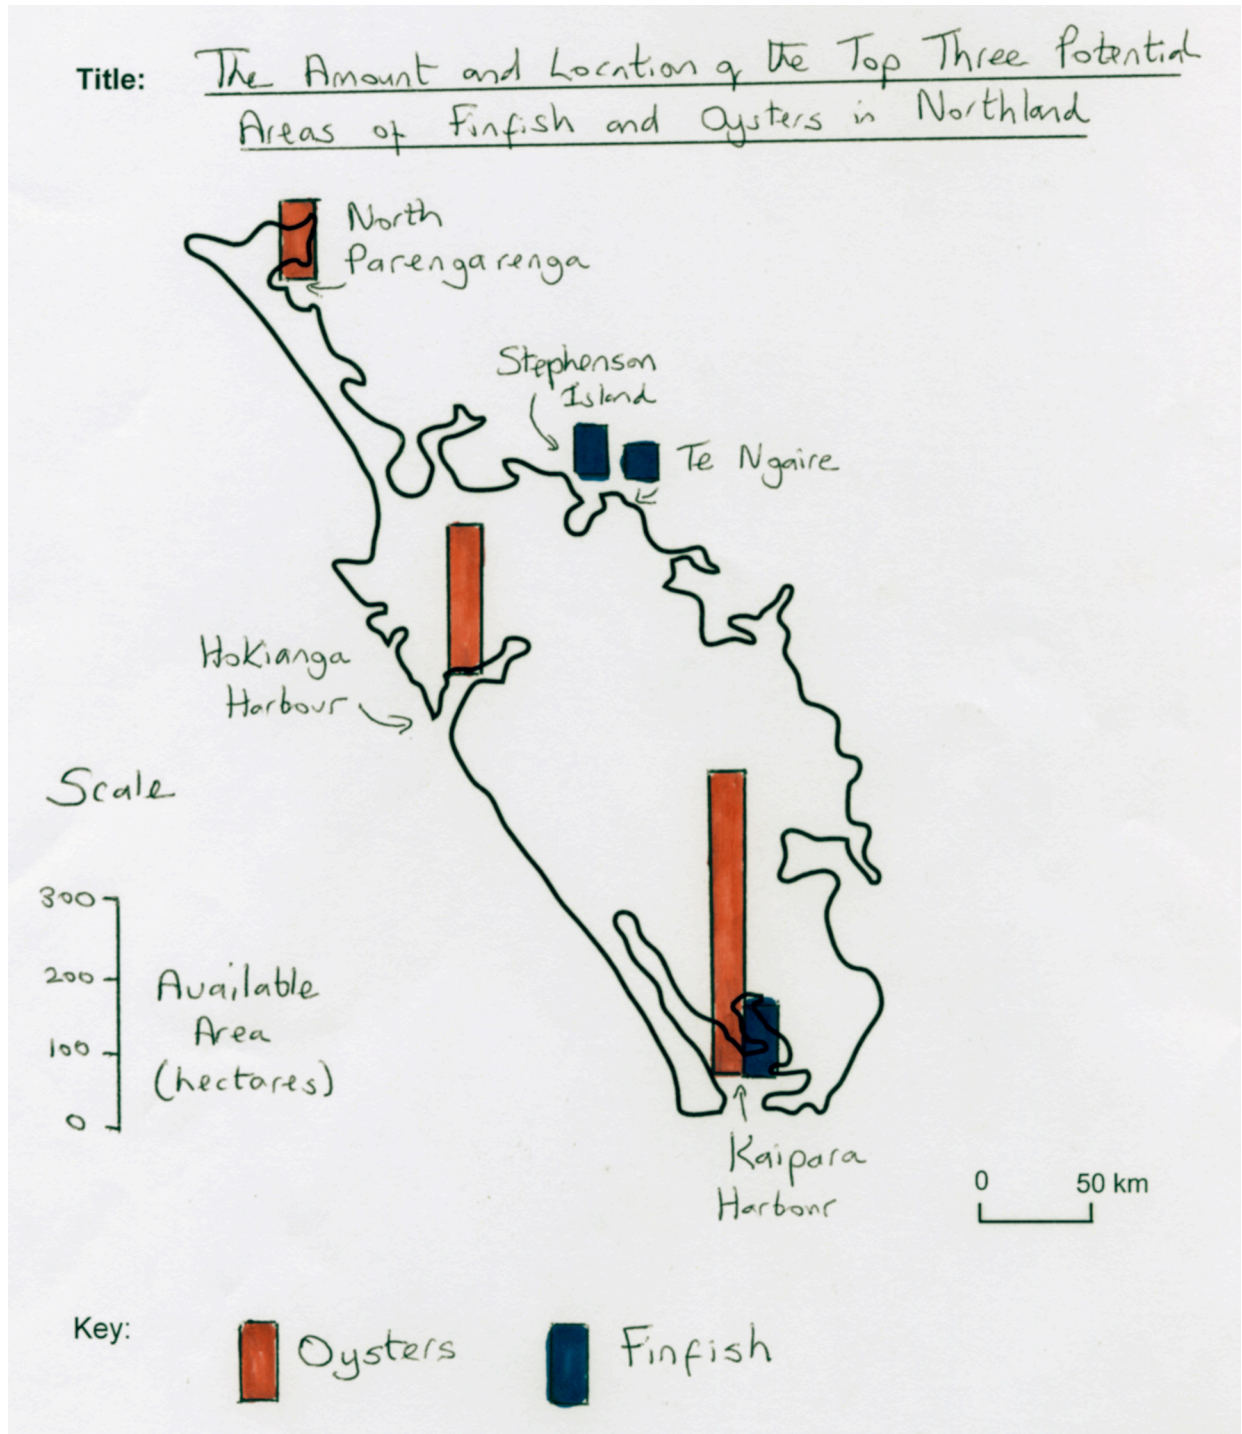 Title: The Amount and Location of the Top Three Potential
Areas of Finfish and Oysters in Northland
North
Parengarenga
Stephenson
Island
Te Ngaire
Hokianga
Harbour
Scale
300
200
100
0
Available
Area
(hectares)
Kaipara
Harbour
0 50 km
Key: Oysters Finfish